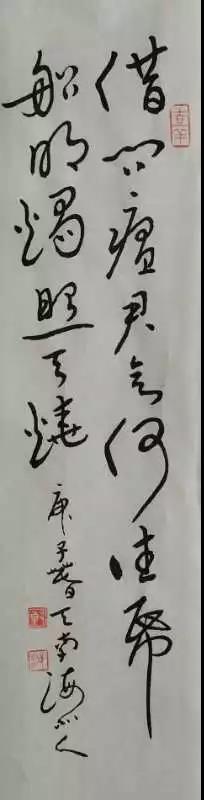 借问瘟君欲何往纸
船明燭照天燒
庚子春天南海人